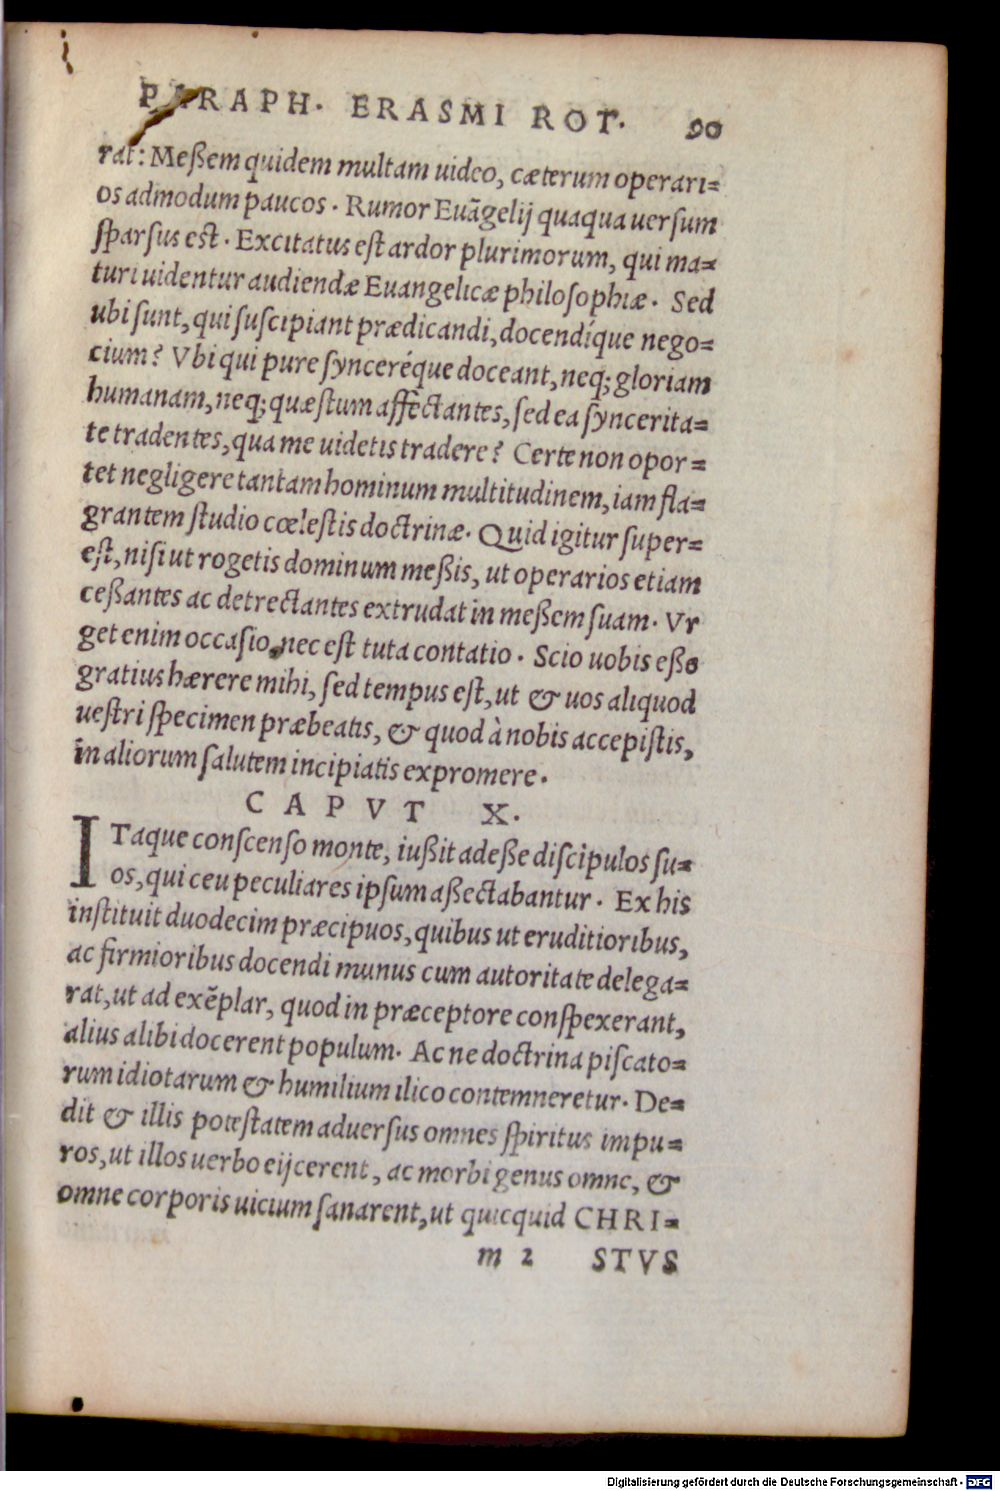 PARAPH. ERASMI ROT. 90
rat: Meßem quidem multam uideo, cæterum operari=
os admodum paucos. Rumor Euãgelij quaqua uersum
sparsus est. Excitatus est ardor plurimorum, qui ma=
turi uidentur audiendæ Euangelicæ philosophiæ. Sed
ubi sunt, qui suscipiant prædicandi, docendíque nego=
cium? Vbi qui pure synceréque doceant, neq; gloriam
humanam, neq; quæstum affectantes, sed ea syncerita=
te tradentes, qua me uidetis tradere? Certe non opor=
tet negligere tantam hominum multitudinem, iam fla=
grantem studio cœlestis doctrinæ. Quid igitur super=
est, nisi ut rogetis dominum meßis, ut operarios etiam
ceßantes ac detrectantes extrudat in meßem suam. Vr
get enim occasio, nec est tuta contatio. Scio uobis eße
gratius hærere mihi, sed tempus est, ut & uos aliquod
uestri specimen præbeatis, & quod à nobis accepistis,
in aliorum salutem incipiatis expromere.
CAPVT X.
ITaque conscenso monte, iußit adeße discipulos su=
os, qui ceu peculiares ipsum aßectabantur. Ex his
instituit duodecim præcipuos, quibus ut eruditioribus,
ac firmioribus docendi munus cum autoritate delega=
rat, ut ad exẽplar, quod in præceptore conspexerant,
alius alibi docerent populum. Ac ne doctrina piscato=
rum idiotarum & humilium ilico contemneretur. De=
dit & illis potestatem aduersus omnes spiritus impu=
ros, ut illos uerbo eijcerent, ac morbi genus omne, &
omne corporis uicium sanarent, ut quicquid CHRI=
m 2 STVS
Digitalisierung gefördert durch die Deutsche Forschungsgemeinschaft - DFG